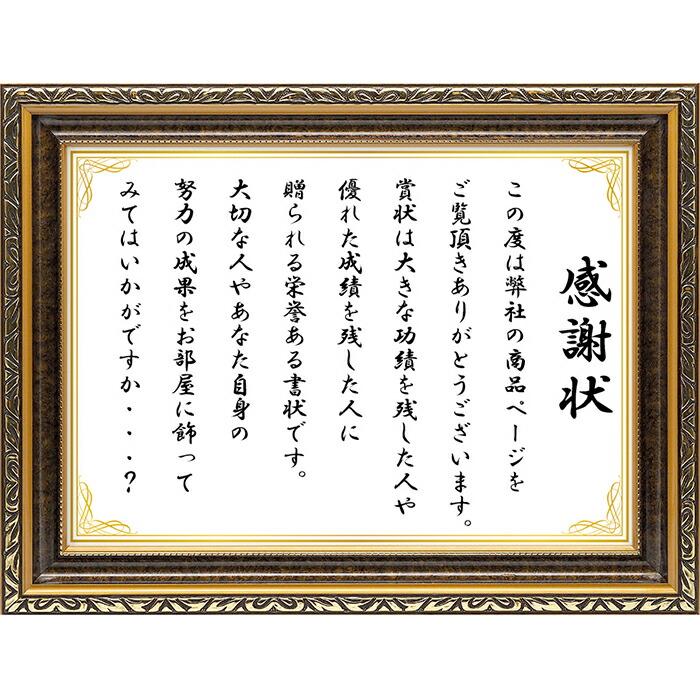 感謝状
この度は弊社の商品ページを
ご覧頂きありがとうございます。
賞状は大きな功績を残した人や
優れた成績を残した人に
贈られる栄誉ある書状です。
大切な人やあなた自身の
努力の成果をお部屋に飾って
みてはいかがですか・・・?